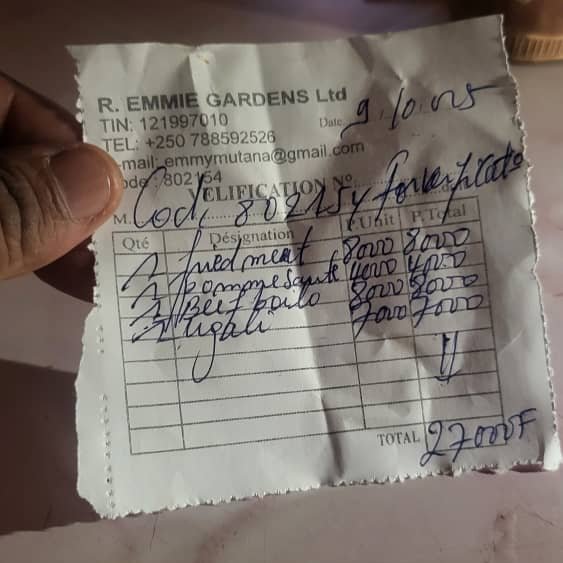 R. EMMIE GARDENS Ltd
TIN: 121997010
Date 9.10.025
TEL: +250 788592526
-mail: emmymutana@gmail.com
ode: 802154
VELIFICATION N°
M. Code 802154
Qté Désignation P.Unit P.Total
1 fried meat 8000 8000
1 pomme saute 4000 4000
1 Beef boilo 8000 8000
ugali 7000 7000
TOTAL 27000F